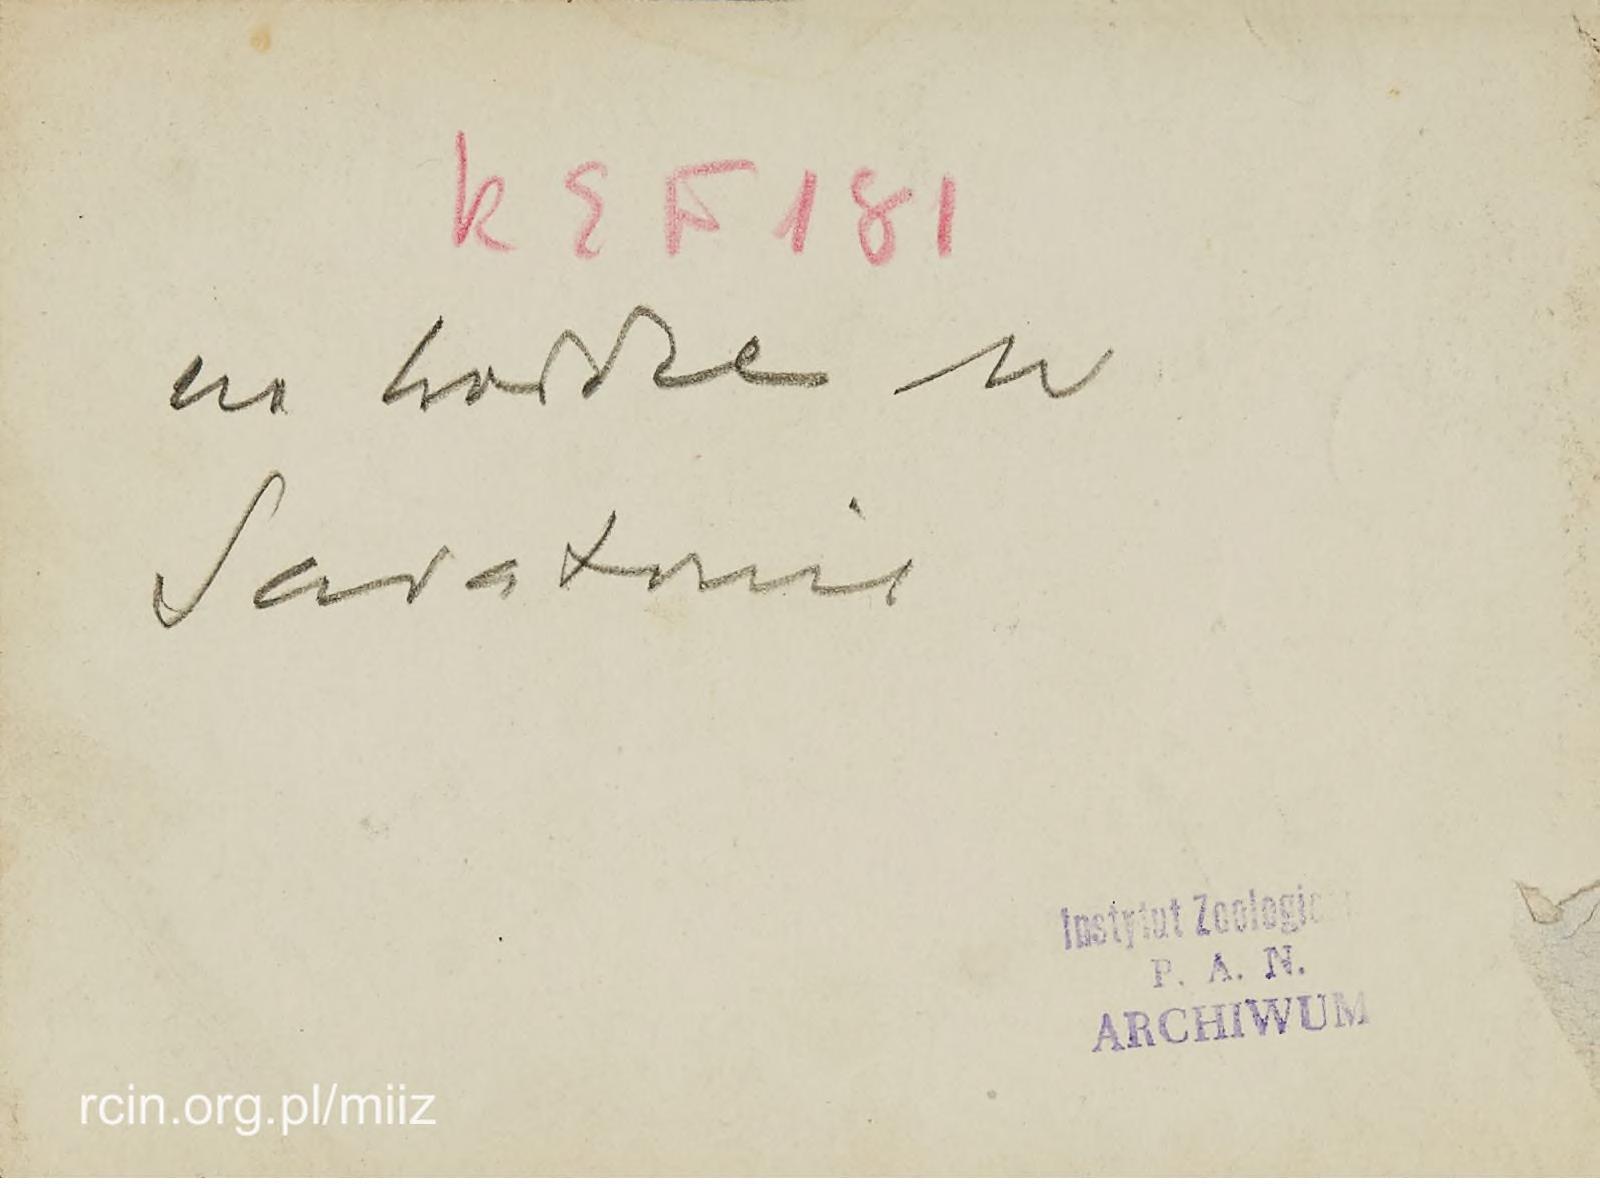 KEF181
na Wołdze w
Saratowie
Instytut Zoologic
P. A. N.
ARCHIWUM
rcin.org.pl/miiz